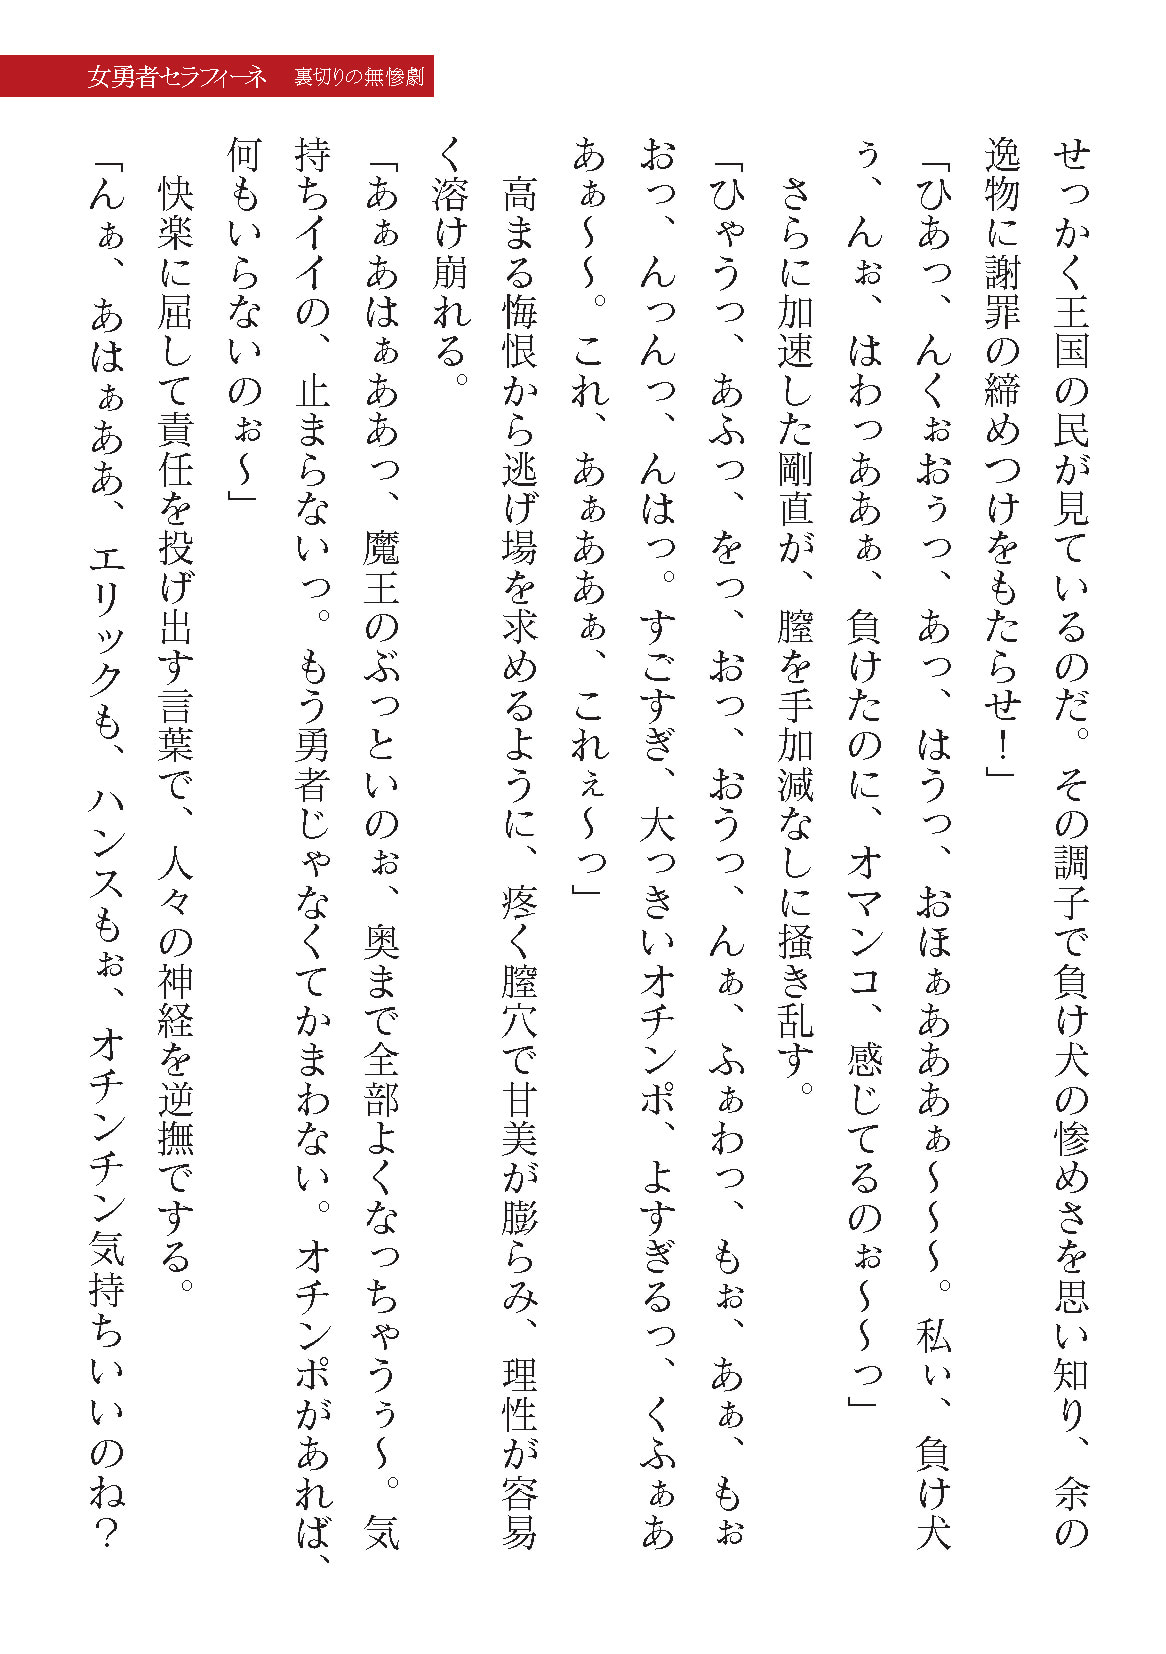 女勇者セラフィーネ　裏切りの無惨劇
せっかく王国の民が見ているのだ。その調子で負け犬の惨めさを思い知り、余の
逸物に謝罪の締めつけをもたらせ！」
「ひあっ、んくぉおぅっ、あっ、はうっ、おほぁあああぁ～～～。私ぃ、負け犬
ぅ、んぉ、はわっああぁ、負けたのに、オマンコ、感じてるのぉ～～っ」
　さらに加速した剛直が、膣を手加減なしに掻き乱す。
「ひゃうっ、あふっ、をっ、おっ、おうっ、んぁ、ふぁわっ、もぉ、あぁ、もぉ
おっ、んっんっ、んはっ。すごすぎ、大っきいオチンポ、よすぎるっ、くふぁあ
あぁ～～。これ、あぁああぁ、これぇ～っ」
　高まる悔恨から逃げ場を求めるように、疼く膣穴で甘美が膨らみ、理性が容易
く溶け崩れる。
「あぁあはぁああっ、魔王のぶっといのぉ、奥まで全部よくなっちゃうぅ～。気
持ちイイの、止まらないっ。もう勇者じゃなくてかまわない。オチンポがあれば、
何もいらないのぉ～」
　快楽に屈して責任を投げ出す言葉で、人々の神経を逆撫でする。
「んぁ、あはぁああ、エリックも、ハンスもぉ、オチンチン気持ちいいのね？